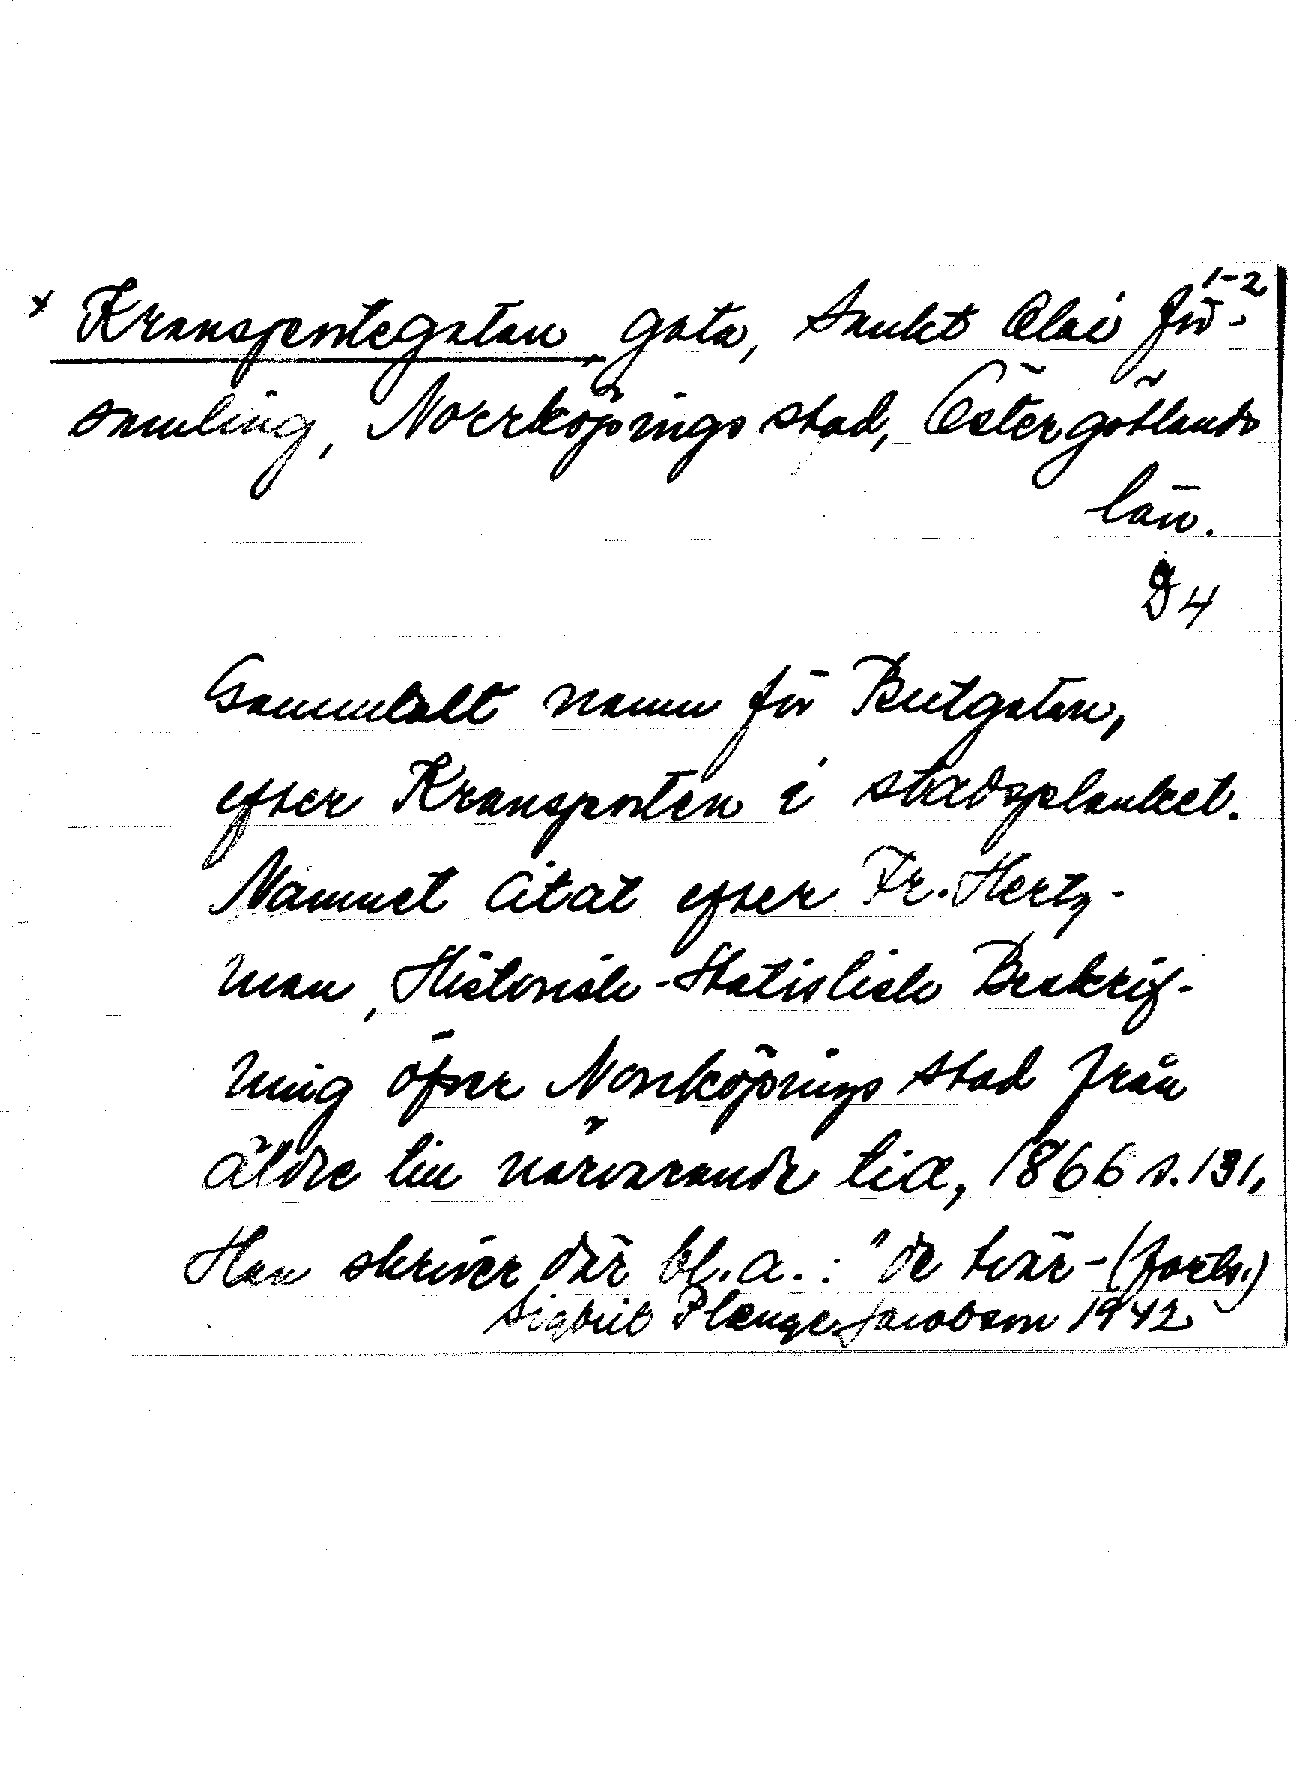 1-2
x Kransportegatan, gata, Sankt Olai för-
samling, Norrköpings stad, Östergötlands
län.
D 4
Gammalt namn för Butgatan,
efter Kransporten i stadsplanket.
Namnet citat efter Fr. Hertz-
man, Historisk-Statistisk Beskrif-
ning öfver Norrköpings stad från
äldre till närvarande tid, 1866 s. 131,
Han skriver där bl.a.: "de tvär- (forts.)
Sigbrit Plænge Jacobson 1942